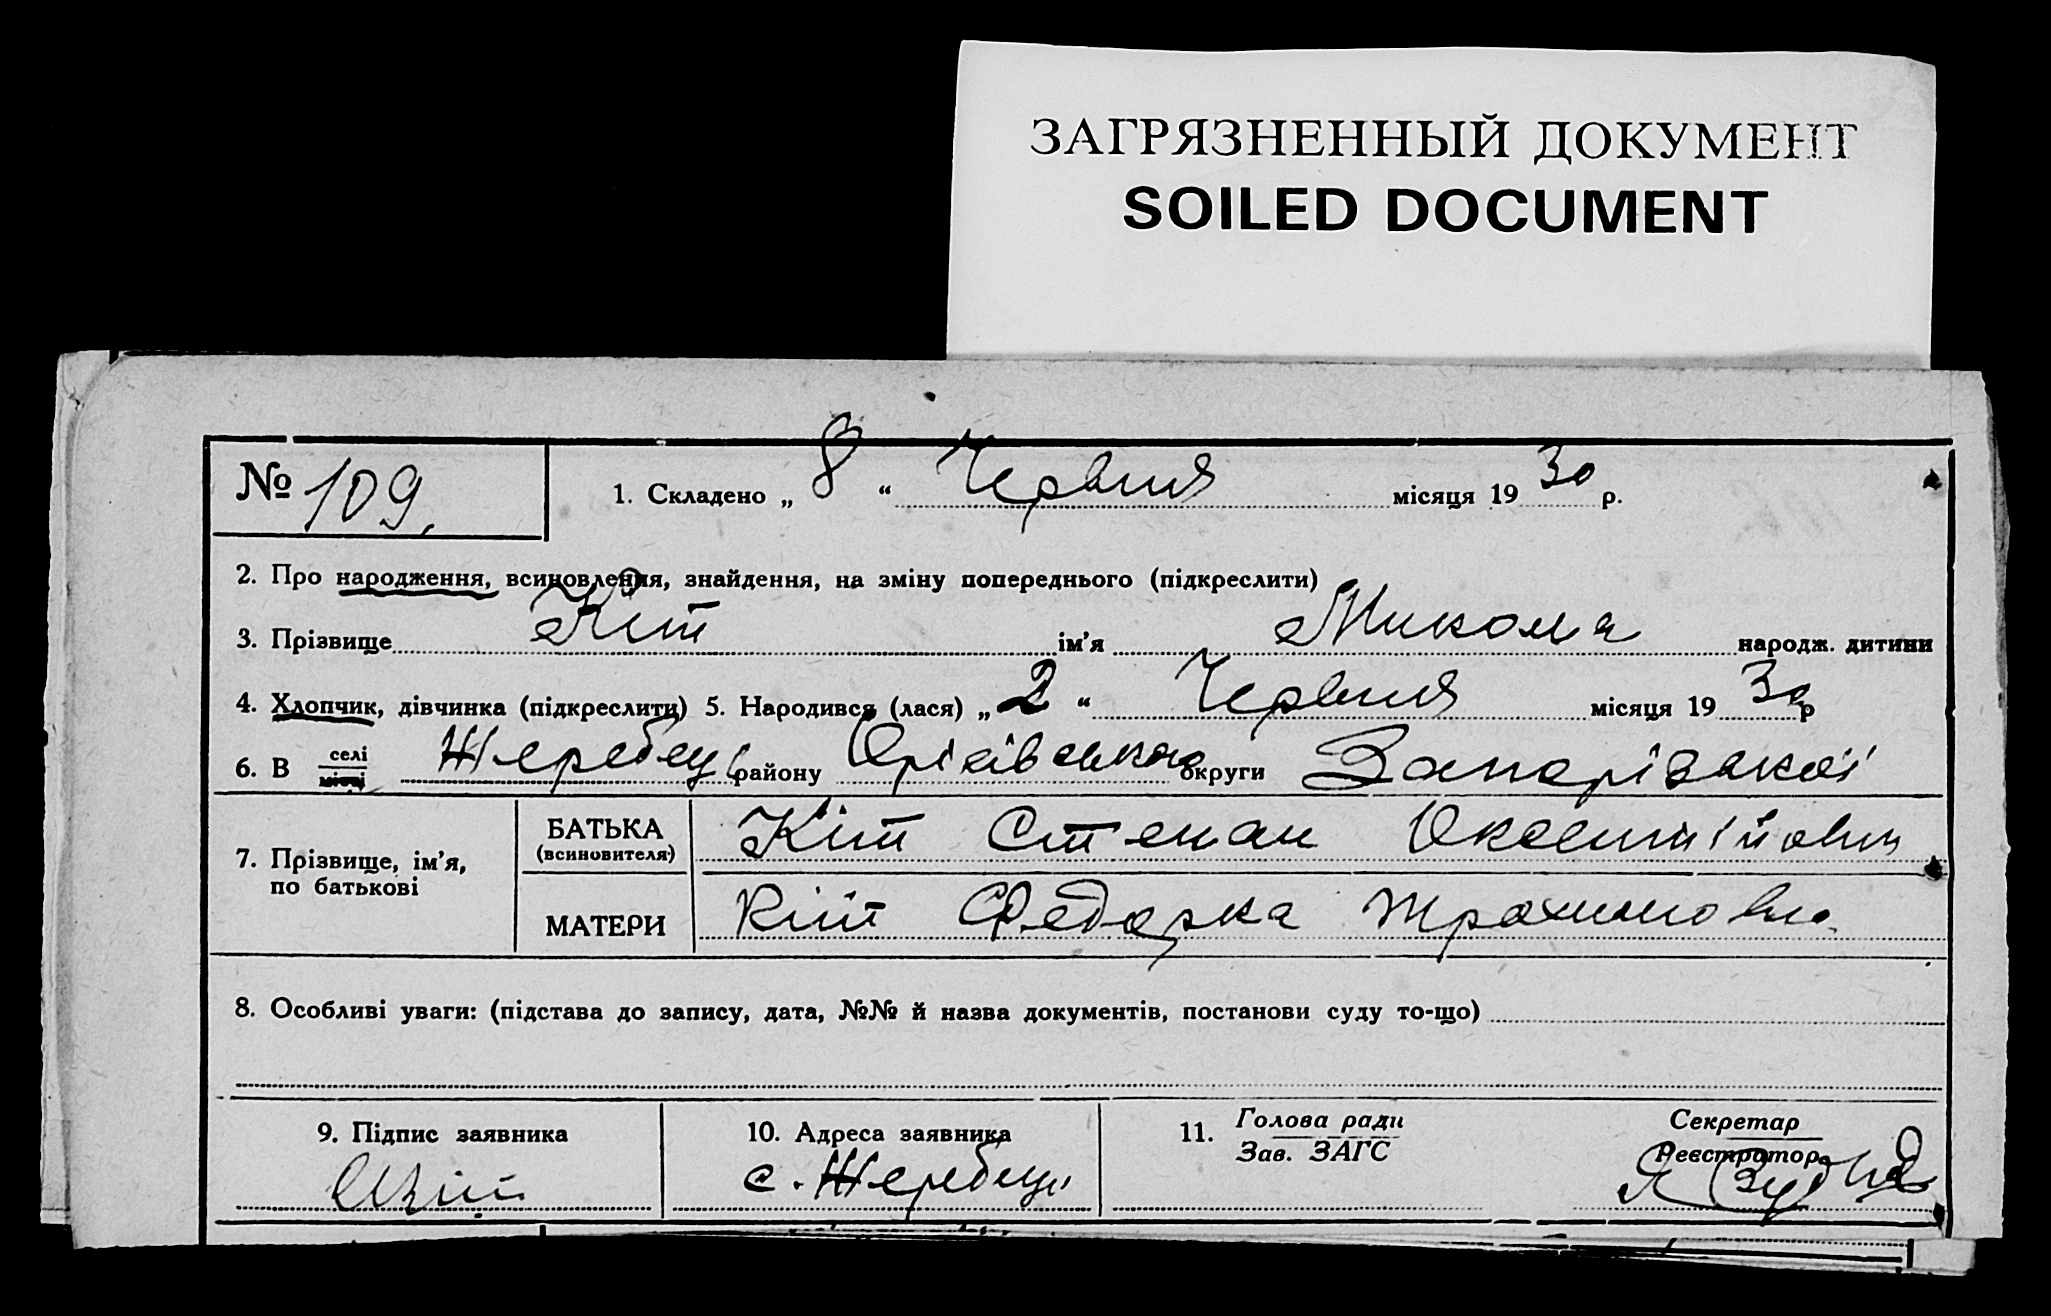 ЗАГРЯЗНЕННЫЙ ДОКУМЕНТ
SOILED DOCUMENT
№ 109. 1. Складено „ 8 “ Червня місяця 19 30 р.
2. Про народження, всиновлення, знайдення, на зміну попереднього (підкреслити)
3. Прізвище Кіт ім’я Микола народж. дитини
4. Хлопчик, дівчинка (підкреслити) 5. Народився (лася) „ 2 “ Червня місяця 19 30 р
6. В селі місті Жеребець району Оріхівського округи Запорізької
7. Прізвище, ім’я, по батькові
БАТЬКА (всиновителя) Кіт Степан
МАТЕРИ Кіт Федорка
8. Особливі уваги: (підстава до запису, дата, №№ й назва документів, постанови суду то-що)
9. Підпис заявника 10. Адреса заявника 11. Голова ради Секретар
Зав. ЗАГС Реєстратор
Скіт с. Жеребець